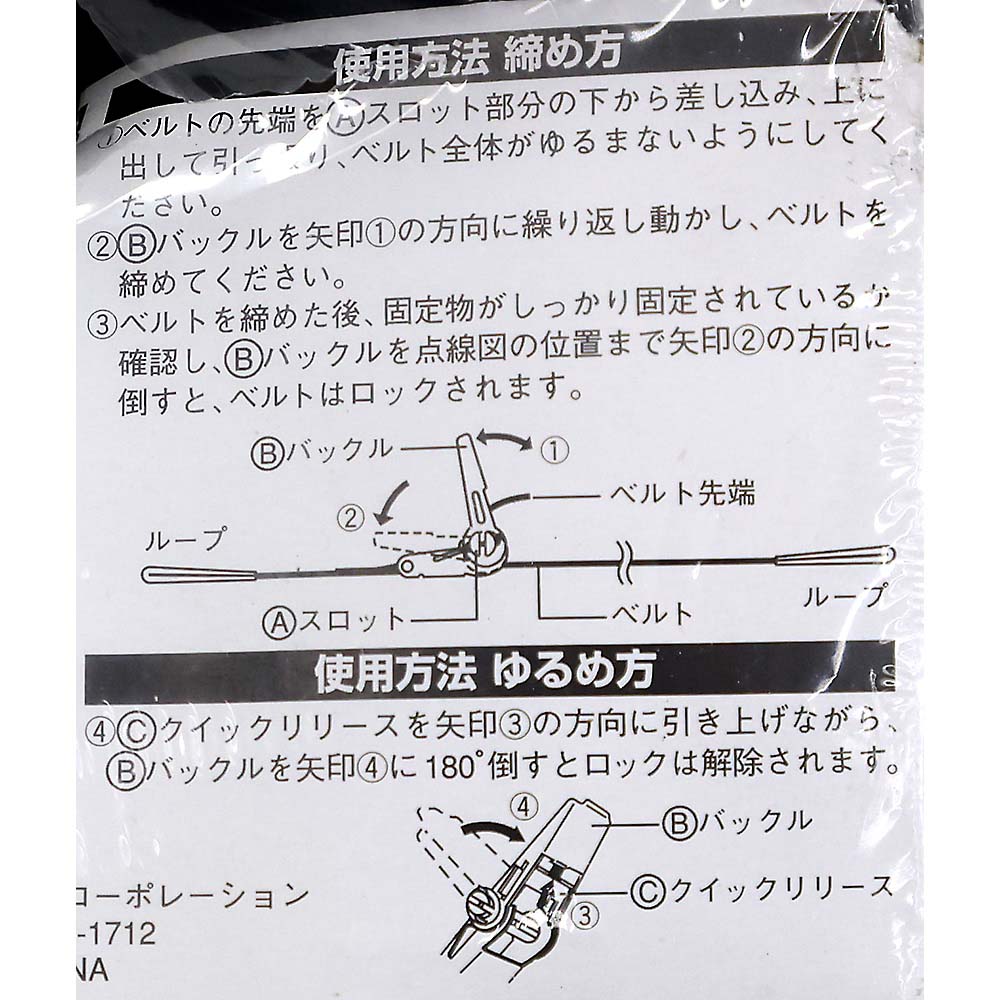 使用方法 締め方
①ベルトの先端をⒶスロット部分の下から差し込み、上に
出して引っ張り、ベルト全体がゆるまないようにしてく
ださい。
②Ⓑバックルを矢印①の方向に繰り返し動かし、ベルトを
締めてください。
③ベルトを締めた後、固定物がしっかり固定されているか
確認し、Ⓑバックルを点線図の位置まで矢印②の方向に
倒すと、ベルトはロックされます。
Ⓑバックル
①
②
ベルト先端
ループ
Ⓐスロット
ベルト
ループ
使用方法 ゆるめ方
④Ⓒクイックリリースを矢印③の方向に引き上げながら、
Ⓑバックルを矢印④に180°倒すとロックは解除されます。
④
Ⓑバックル
Ⓒクイックリリース
③
コーポレーション
-1712
NA